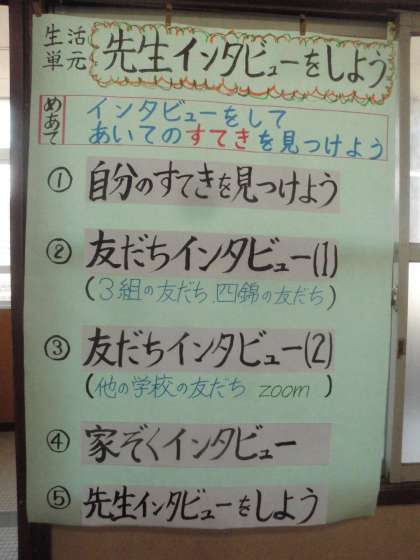 生活単元
先生インタビューをしよう
めあて
インタビューをして
あいてのすてきを見つけよう
① 自分のすてきを見つけよう
② 友だちインタビュー(1)
(3組の友だち 四錦の友だち)
③ 友だちインタビュー(2)
(他の学校の友だち zoom )
④ 家ぞくインタビュー
⑤ 先生インタビューをしよう